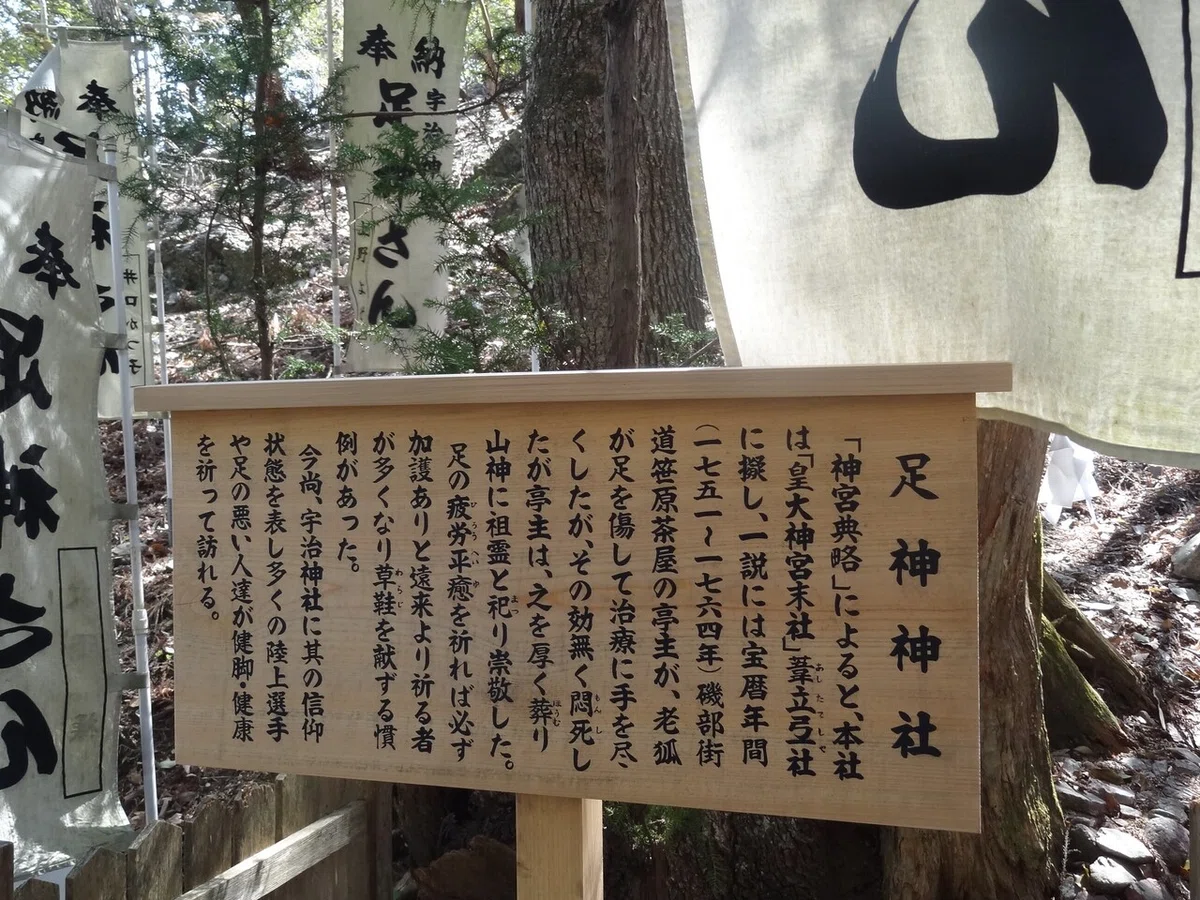 足神神社
「神宮典略」によると、本社
は「皇大神宮末社」葦立弓社
あしたてしや
に擬し、一説には宝暦年間
(一七五一〜一七六四年)磯部街
道笹原茶屋の亭主が、老狐
が足を傷して治療に手を尽
くしたが、その効無く悶死し
もんし
たが亭主は、之を厚く葬り
ほうむ
山神に祖霊と祀り崇敬した。
まつ
足の疲労平癒を祈れば必ず
ひろうへいゆ
加護ありと遠来より祈る者
が多くなり草鞋を献ずる慣
わらじ
例があった。
今尚、宇治神社に其の信仰
状態を表し多くの陸上選手
や足の悪い人達が健脚・健康
を祈って訪れる。
奉納
足
さん
宇治神
上野よ
奉納
井口かつ子
奉
足神さん